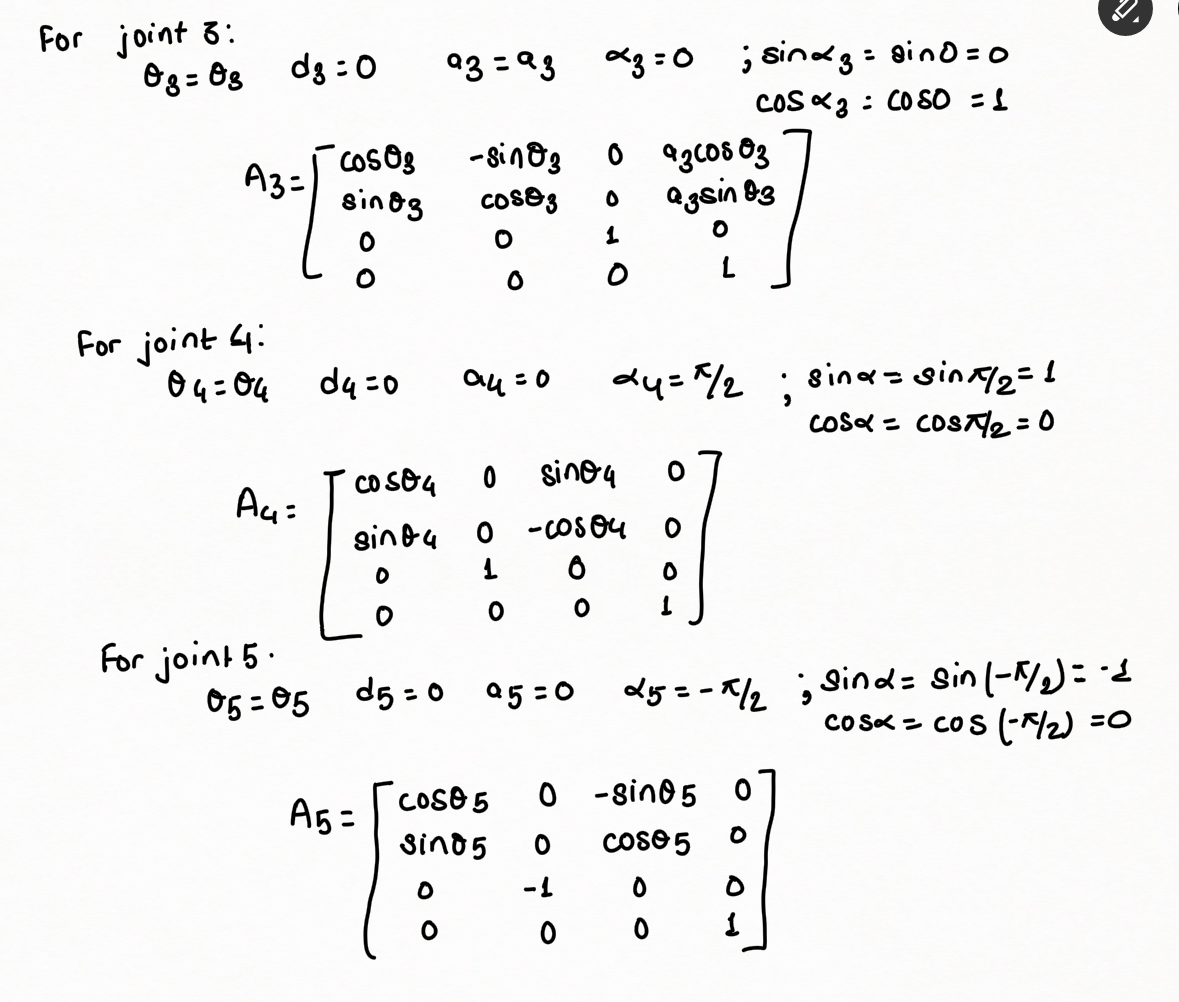 For joint 3:
θ3 = θ3 d3 = 0 a3 = a3 α3 = 0 ; sinα3 = sin0 = 0
cosα3 = cos0 = 1
A3 = [ cosθ3 -sinθ3 0 a3cosθ3 ]
sinθ3 cosθ3 0 a3sinθ3
0 0 1 0
0 0 0 1
For joint 4:
θ4 = θ4 d4 = 0 a4 = 0 α4 = π/2 ; sinα = sinπ/2 = 1
cosα = cosπ/2 = 0
A4 = [ cosθ4 0 sinθ4 0 ]
sinθ4 0 -cosθ4 0
0 1 0 0
0 0 0 1
For joint 5.
θ5 = θ5 d5 = 0 a5 = 0 α5 = -π/2 ; sinα = sin(-π/2) = -1
cosα = cos(-π/2) = 0
A5 = [ cosθ5 0 -sinθ5 0 ]
sinθ5 0 cosθ5 0
0 -1 0 0
0 0 0 1